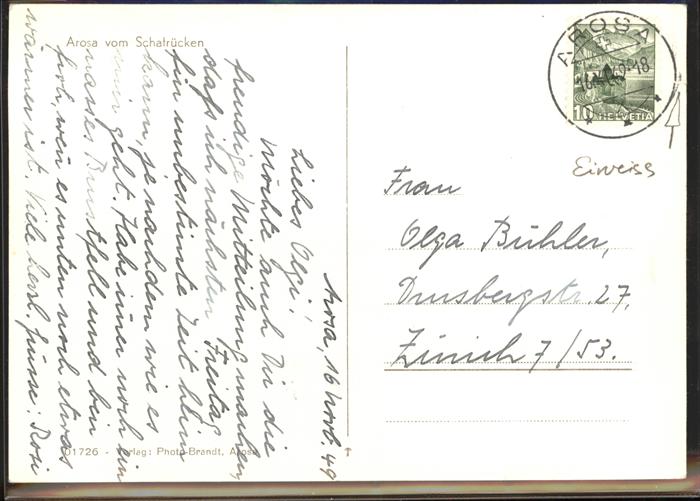 Arosa vom Schafrücken
Arosa, 16 Nov. 49
Liebes Olgi!
Möchte auch Dir die
freudige Mitteilung machen,
daß ich nächsten Freitag
für unbestimte Zeit heim
kann, je nachdem wie es
mir geht. Habe imer noch ein
nasses Brustfell und bin
froh, wen es unten noch etwas
wärmer ist. Viele herzl. Grüsse: Rosi
01726 - Verlag: Photo-Brandt, Arosa
AROSA
16. 49-18
10 HELVETIA
Eiweiss
Frau
Olga Bühler,
Drusbergstr. 27,
Zürich 7/53.